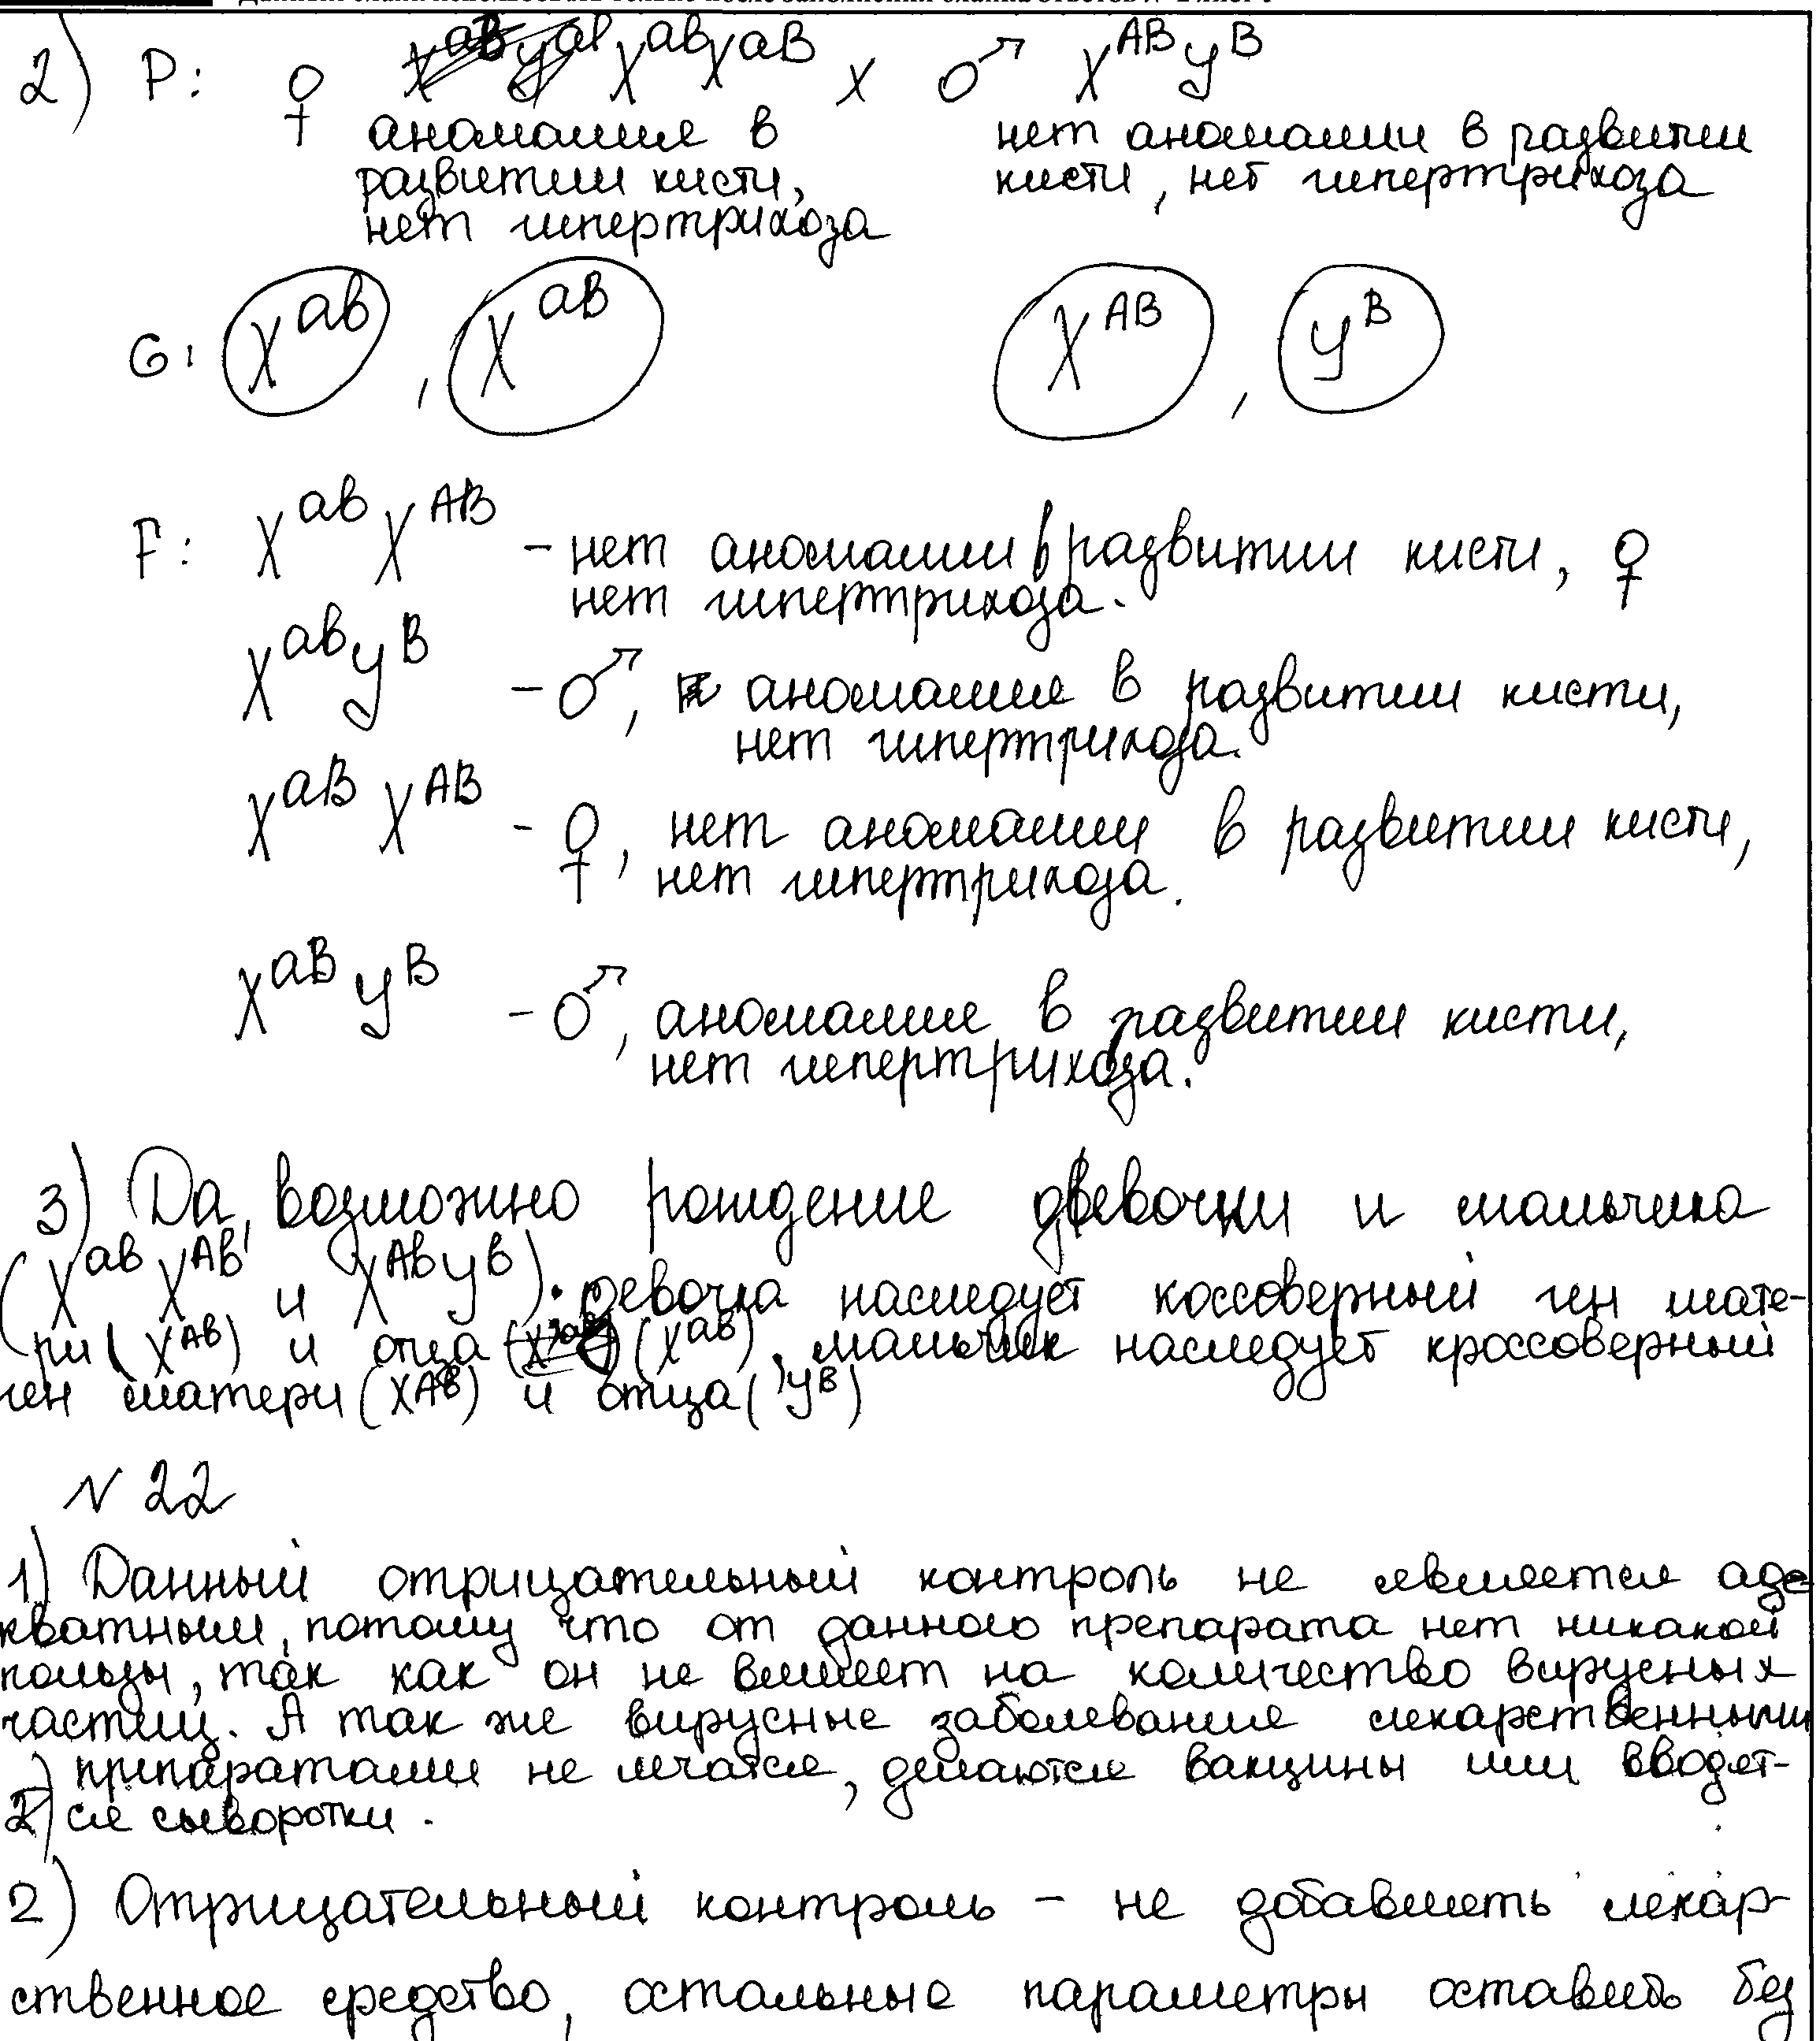 2) P: ♀ X^ав X^аВ х ♂ X^АВ У^В
аномалия в нет аномалии в развитии
развитии кисти, кисти, нет гипертрихоза
нет гипертрихоза
G: X^ав, X^аВ X^АВ, У^В
F: X^ав X^АВ - нет аномалии в развитии кисти, ♀
нет гипертрихоза.
X^ав У^В - ♂, аномалия в развитии кисти,
нет гипертрихоза.
X^аВ X^АВ - ♀, нет аномалии в развитии кисти,
нет гипертрихоза.
X^аВ У^В - ♂, аномалия в развитии кисти,
нет гипертрихоза.
3) Да, возможно рождение девочки и мальчика
(X^ав X^Ав и X^Ав У^в). девочка наследует коссоверный ген мате-
ри (X^Ав) и отца (X^ав), мальчик наследует кроссоверный
ген матери (X^Ав) и отца (У^в)
N 22
1) Данный отрицательный контроль не является аде
кватным, потому что от данного препарата нет никакой
пользы, так как он не влияет на количество вирусных
частиц. А так же вирусные заболевания лекарственными
препаратами не лечатся, делаются вакцины или вводят-
ся сыворотки.
2) Отрицательный контроль - не добавлять лекар-
ственное средство, остальные параметры оставить без